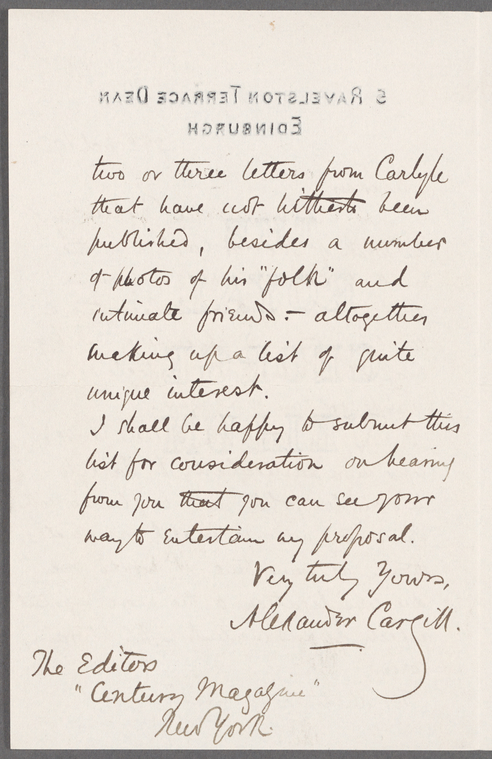 5 Ravelston Terrace Dean
Edinburgh
two or three letters from Carlyle
that have not hitherto been
published, besides a number
of photos of his "folk" and
intimate friends :- altogether
making up a list of quite
unique interest.
I shall be happy to submit this
list for consideration on hearing
from you that you can see your
way to entertain my proposal.
Very truly Yours,
Alexander Cargill.
The Editors
"Century Magazine"
New York.